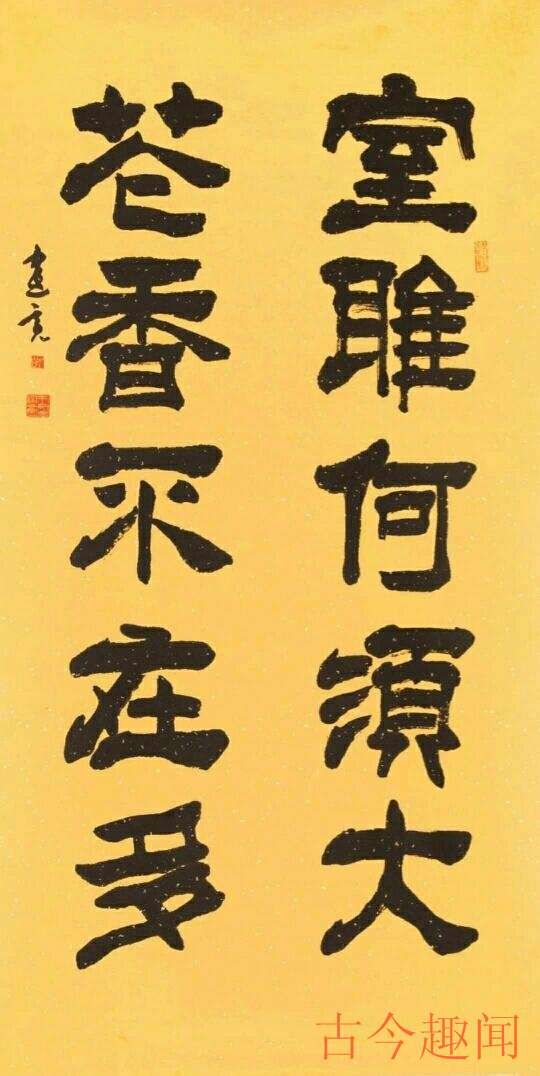 室雅何須大
花香不在多
古今趣闻